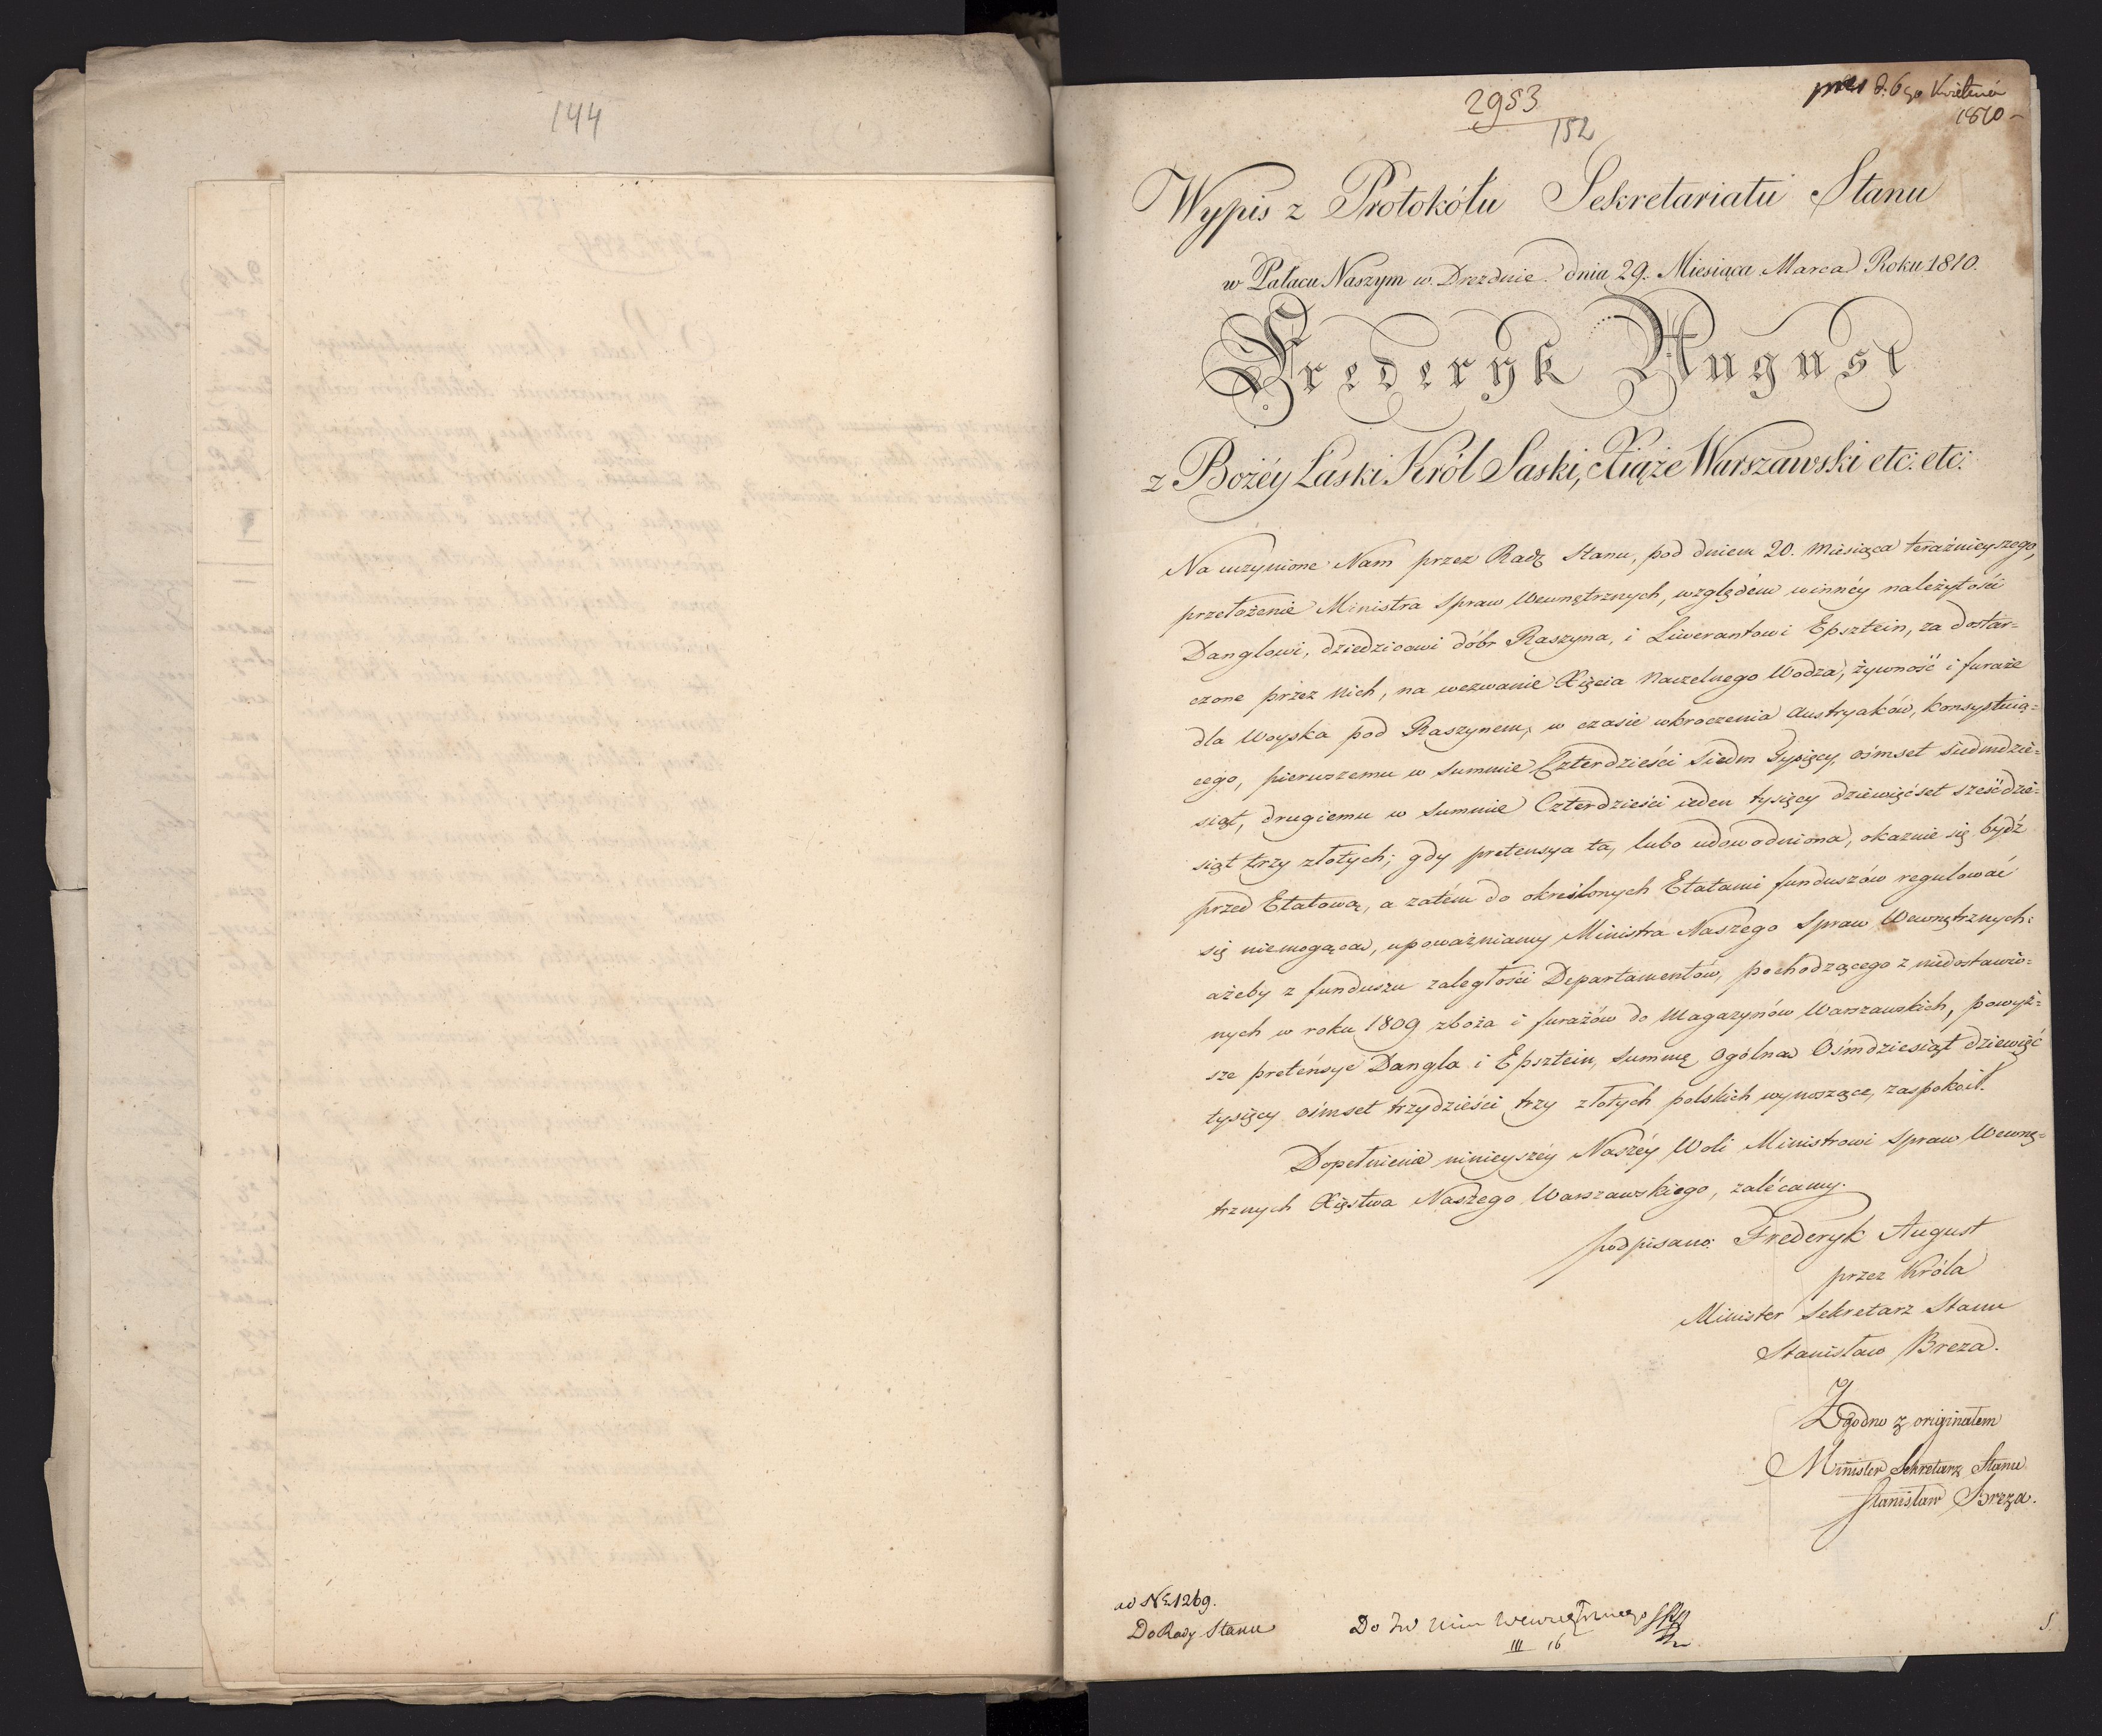 144
2983
152
pres d. 6go Kwietnia
1810
Wypis z Protokółu Sekretariatu Stanu
w Pałacu Naszym w Dreznie dnia 29. Miesiąca Marca Roku 1810.
Frederyk August
z Bożéy Łaski Król Saski, Xiąże Warszawski etc: etc:
Na uczynione Nam przez Radę Stanu, pod dniem 20. Miesiąca teraźnieyszego,
przełożenie Ministra Spraw Wewnętrznych, względem winnéy należytości
Danglowi, dziedzicowi dóbr Raszyna, i Liwerantowi Epsztein, za dostar=
czone przez nich, na wezwanie Xięcia Naczelnego Wodza, żywność i furaże
dla Woyska pod Raszynem, w czasie wkroczenia Austryaków, konsystuią=
cego, pierwszemu w Summie Czterdzieści siedm Tysięcy, ośmset siedmdzie=
siąt, drugiemu w Summie Czterdzieści ieden tysięcy dziewięćset sześćdzie=
siąt trzy złotych; gdy pretensya ta, lubo udowodniona, okazuie się bydź
przed Etatową, a zatém do określonych Etatami funduszów regulować
się niemogąca, upoważniamy Ministra Naszego Spraw Wewnętrznych:
ażeby z funduszu zaległości Departamentów, pochodzącego z niedostawio=
nych w roku 1809 zboża i furażów do Magazynów Warszawskich, powyż=
sze pretensye Dangla i Epsztein, Summę Ogólną Ośmdziesiąt dziewięć
tysięcy ośmset trzydzieści trzy złotych polskich wynoszące, zaspokoił.
Dopełnienie ninieyszéy Naszéy Woli Ministrowi Spraw Wewnę=
trznych Xięstwa Naszego Warszawskiego, zalécamy.
podpisano: Frederyk August
przez Króla
Minister Sekretarz Stanu
Stanisław Breza.
Zgodno z originałem
Minister Sekretarz Stanu
Stanisław Breza.
ad No 1269.
Do Rady Stanu
Do JW Min Wewnętrznego
III 16